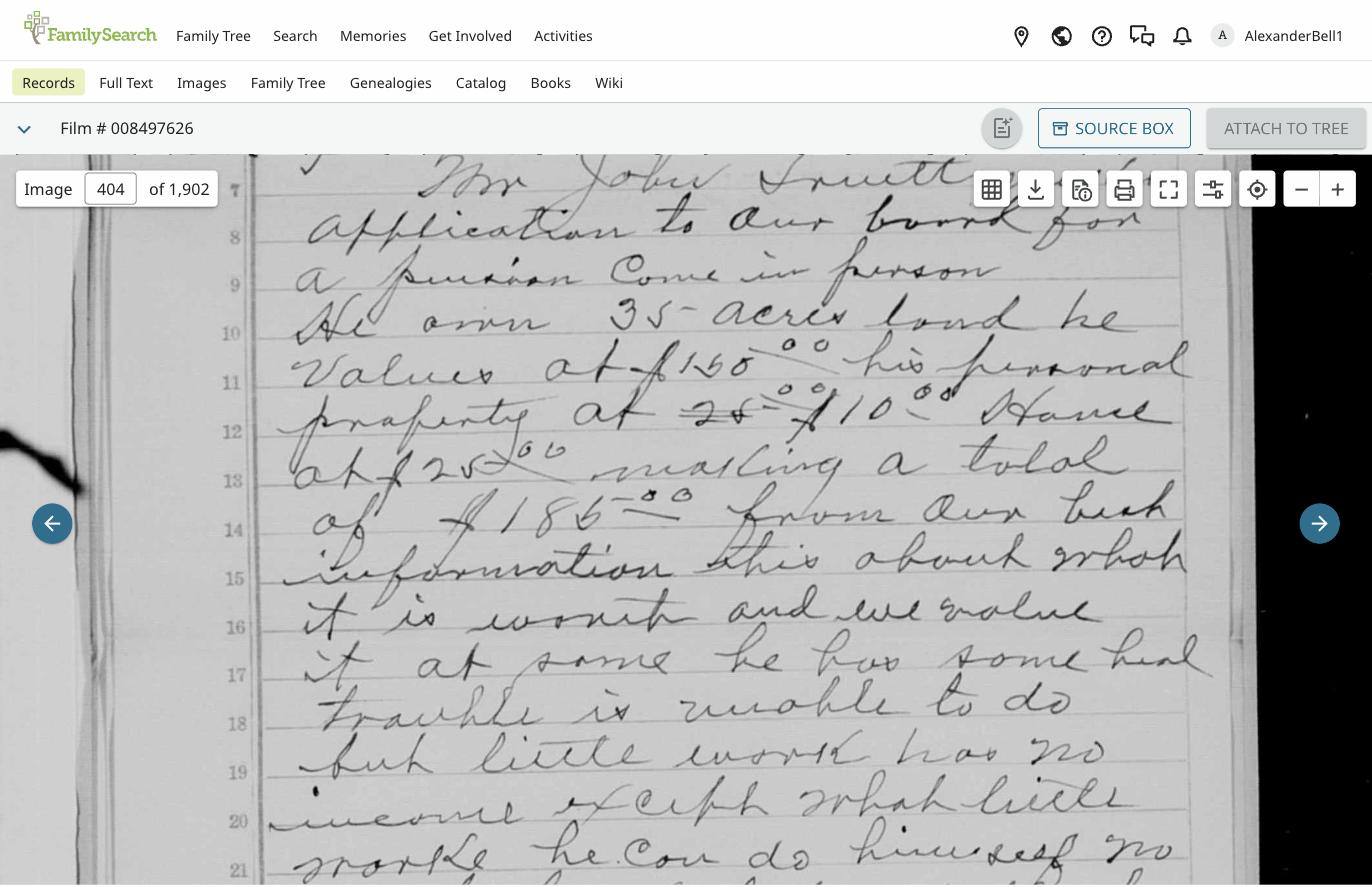 FamilySearch
Family Tree Search Memories Get Involved Activities
A AlexanderBell1
Records Full Text Images Family Tree Genealogies Catalog Books Wiki
Film # 008497626
SOURCE BOX
ATTACH TO TREE
Image 404 of 1,902
7 Mr John Truitt
8 application to our board for
9 a pension Come in person
10 He own 35 acres land he
11 Values at $150 00 his personal
12 property at 25 00 $10 00 House
13 at $25 00 making a total
14 of $185 00 from our best
15 information this about what
16 it is worth and we value
17 it at same he has some
18 trouble is unable to do
19 but little work has no
20 income except what little
21 worke he Can do himself no